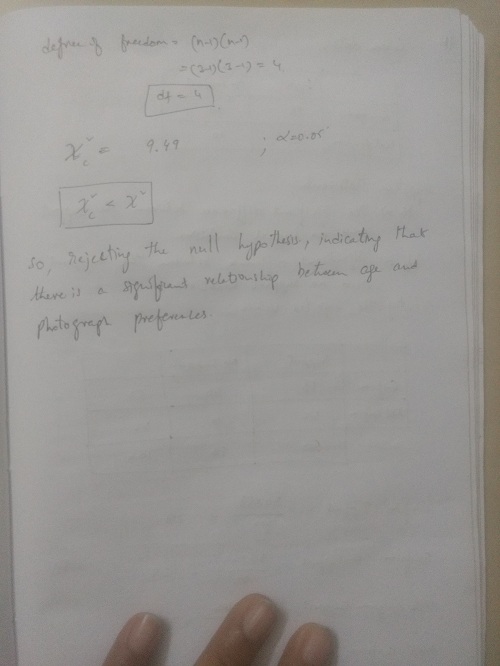 degree of freedom = (n-1)(n-1)
= (3-1)(3-1) = 4
df = 4
χ²c = 9.49 ; α=0.05
χ²c < χ²
so, Rejecting the null hypothesis, indicating that
there is a significant relationship between age and
photograph preferences.